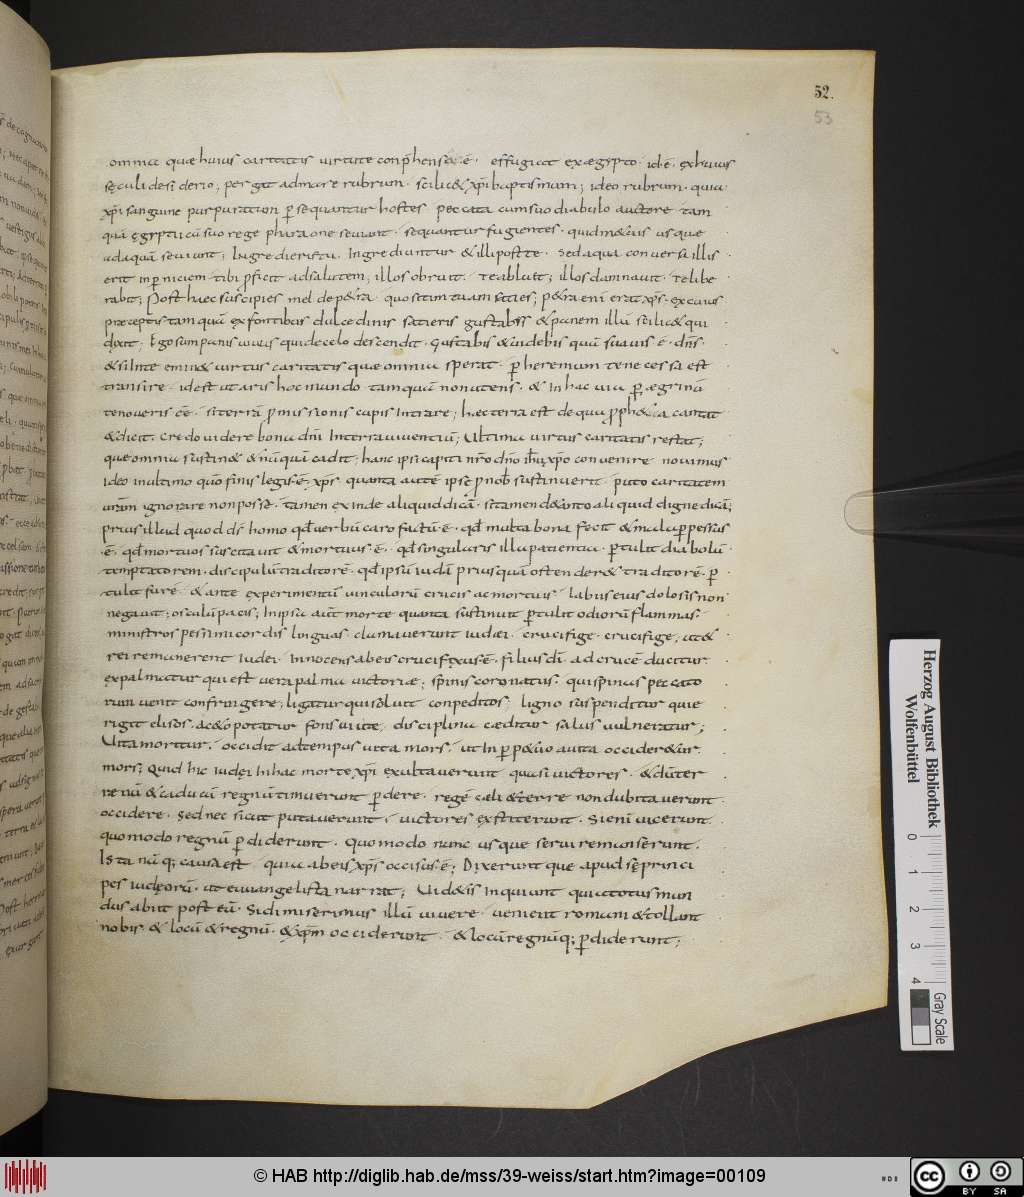 52.
53
omnia quae huius caritatis uirtute conp̄hensa ē· effugiat ex aegypto· id·ē· ex huius
sęculi desiderio; pergat ad mare rubrum· scilic& xp̄i baptismum; ideo rubrum· quia
xp̄i sanguine purpuratum p̄sequantur hostes peccata cum suo diabolo auctore tam
quā ęgyptii cū suo rege pharaone seuiunt· sequantur fugientes· usque
ad aquā seuiunt; Ingredieris tu· Ingrediuntur & illi post te· Sed aqua conuersa illis
erit in p̄niciem· tibi p̄ficit ad salutem; illos obruit· te abluet; illos damnauit· te libe
rabit; Post haec suscipies mel de p&ra· quo sitim tuam saties; p&ra enī erat xp̄s· ex cuius
praeceptis tam quā ex fontibus dulcedinis satieris gustabis & panem illū scilic& qui
dixit; Ego sum panis uiuus qui de celo descendit· Gustabis & uidebis quā suauis ē· dn̄s·
& si in te emin& uirtus caritatis que omnia sperat· p̄ heremum te necesse est
transire· id est utaris hoc mundo tamquā non utens· & In hac uia p̄ęgrinū
te noueris eē· si terrā p̄missionis cupis Intrare; haec terra est de qua p̄ph&a cantat
& dicit· credo uidere bona dn̄i In terra uiuentiū; Ultima uirtus caritatis restat;
que omnia sustin& & nūquā cadit; hanc ipsi capiti nr̄o dn̄o ih̄u xp̄o conuenire nouimus
ideo in ultimo quō finis legis·ē· xp̄s· quanta autē ipse p̄ nob̄ sustinuerit· puto caritatem
ur̄am ignorare non posse· tamen exinde aliquid dicā· si tamen de tanto aliquid digne dicā;
prius illud quod dr̄ homo qd̄ uerbū caro factū·ē· qd̄ multa bona fecit & mala p̄pessus
·ē· qd̄ mortuos suscitauit & mortuus ē· qd̄ singularis illa patientia· p̄tulit diabolū
temptatorem· discipulū traditorē· qd̄ ipsū iudā priusquā ostender& traditorē· p̄
tulit furē· & ante experimentū uinculorū crucis ac mortuis· labiis eius dolosis non
negauit; osculū pacis; In ipsa aūt morte quanta sustinuit p̄tulit odiorū flammas·
ministros pessimi cordis linguas· clamauerunt iudaei· crucifige· crucifige; ut &
rei remanerent iudei· Innocens ab eis crucifixus·ē· filius dī· ad crucē ducitur·
expalmatur qui est uera palma uictoriae; spinis coronatus· qui spinas peccato
rum uenit confringere; ligatur qui soluit conpeditos; ligno suspenditur que
rigit elisos· ac&o potatur fons uite; disciplina caeditur salus uulneratur;
Uita moritur; occidit ad tempus uita mors; ut In p̄p&uo a uita occider&ur
mors; Quid hic iudęi In hac morte xp̄i exultauerunt quasi uictores· & dū ter
renū & caducū regnū timuerunt p̄dere· regē cæli & terre non dubitauerunt·
occidere· Sed nec sicut putauerunt; uictores extiterunt· Si enī uicerunt·
quomodo regnū p̄diderunt· Quomodo nunc usque serui remanserunt·
Ista nāq; causa est quia ab eis xp̄s occisus·ē; Dixerunt que apud se princi
pes iudęorū· ut euuangelista narrat; Uid&is Inquiunt quia totus mun
dus abiit post eū· Si dimiserimus illū uiuere· uenient romani & tollant
nobis & locū & regnū· & xp̄m occiderunt· & locū regnūq; p̄diderunt;
Herzog August Bibliothek
Wolfenbüttel
0 1 2 3 4
Gray Scale
© HAB http://diglib.hab.de/mss/39-weiss/start.htm?image=00109
cc BY SA